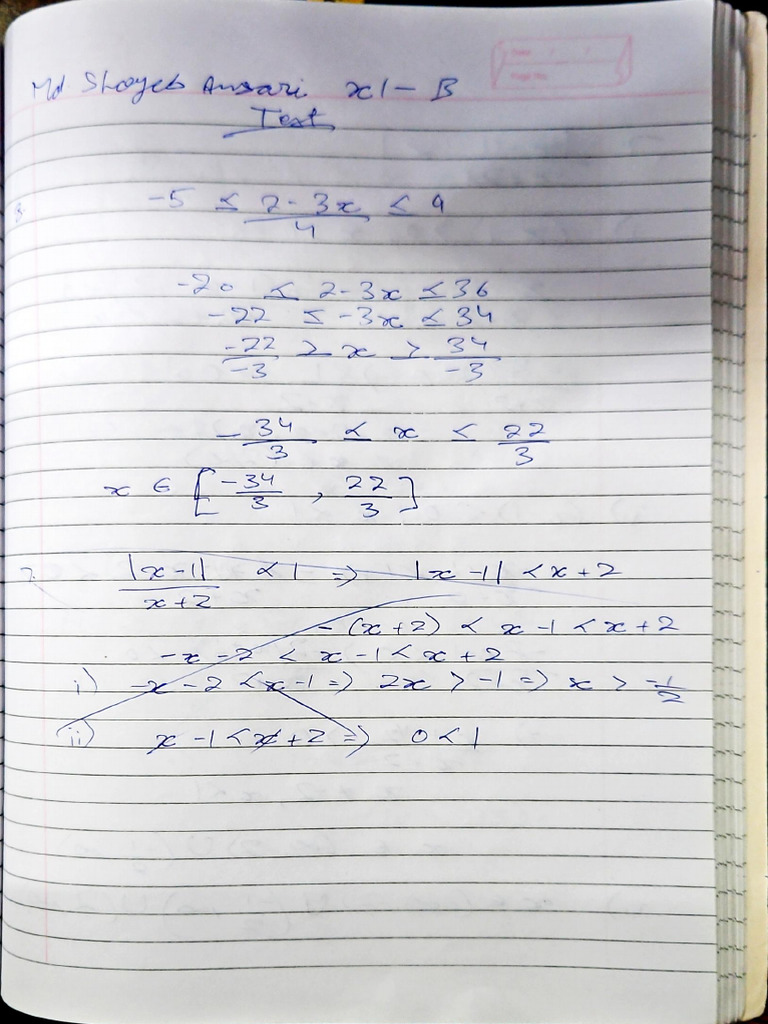 Md Shoyeb Ansari XI - B
Test
3. -5 ≤ (2 - 3x)/4 ≤ 9
-20 ≤ 2-3x ≤ 36
-22 ≤ -3x ≤ 34
-22/-3 ≥ x ≥ 34/-3
-34/3 ≤ x ≤ 22/3
x ∈ [-34/3 , 22/3]
7. |x-1|/(x+2) < 1 => |x-1| < x+2
-(x+2) < x-1 < x+2
-x-2 < x-1 < x+2
i) -x-2 < x-1 => 2x > -1 => x > -1/2
ii) x-1 < x+2 => 0 < 1